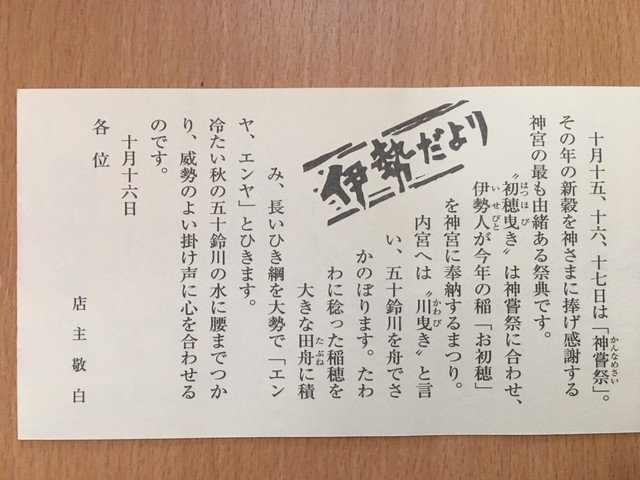 伊勢だより
十月十五、十六、十七日は「神嘗祭」。
その年の新穀を神さまに捧げ感謝する
神宮の最も由緒ある祭典です。
〝初穂曳き〟は神嘗祭に合わせ、
伊勢人が今年の稲「お初穂」
を神宮に奉納するまつり。
内宮へは〝川曳き〟と言
い、五十鈴川を舟でさ
かのぼります。たわ
わに稔った稲穂を
大きな田舟に積
み、長いひき綱を大勢で「エン
ヤ、エンヤ」とひきます。
冷たい秋の五十鈴川の水に腰までつか
り、威勢のよい掛け声に心を合わせる
のです。
十月十六日
各位
店主敬白